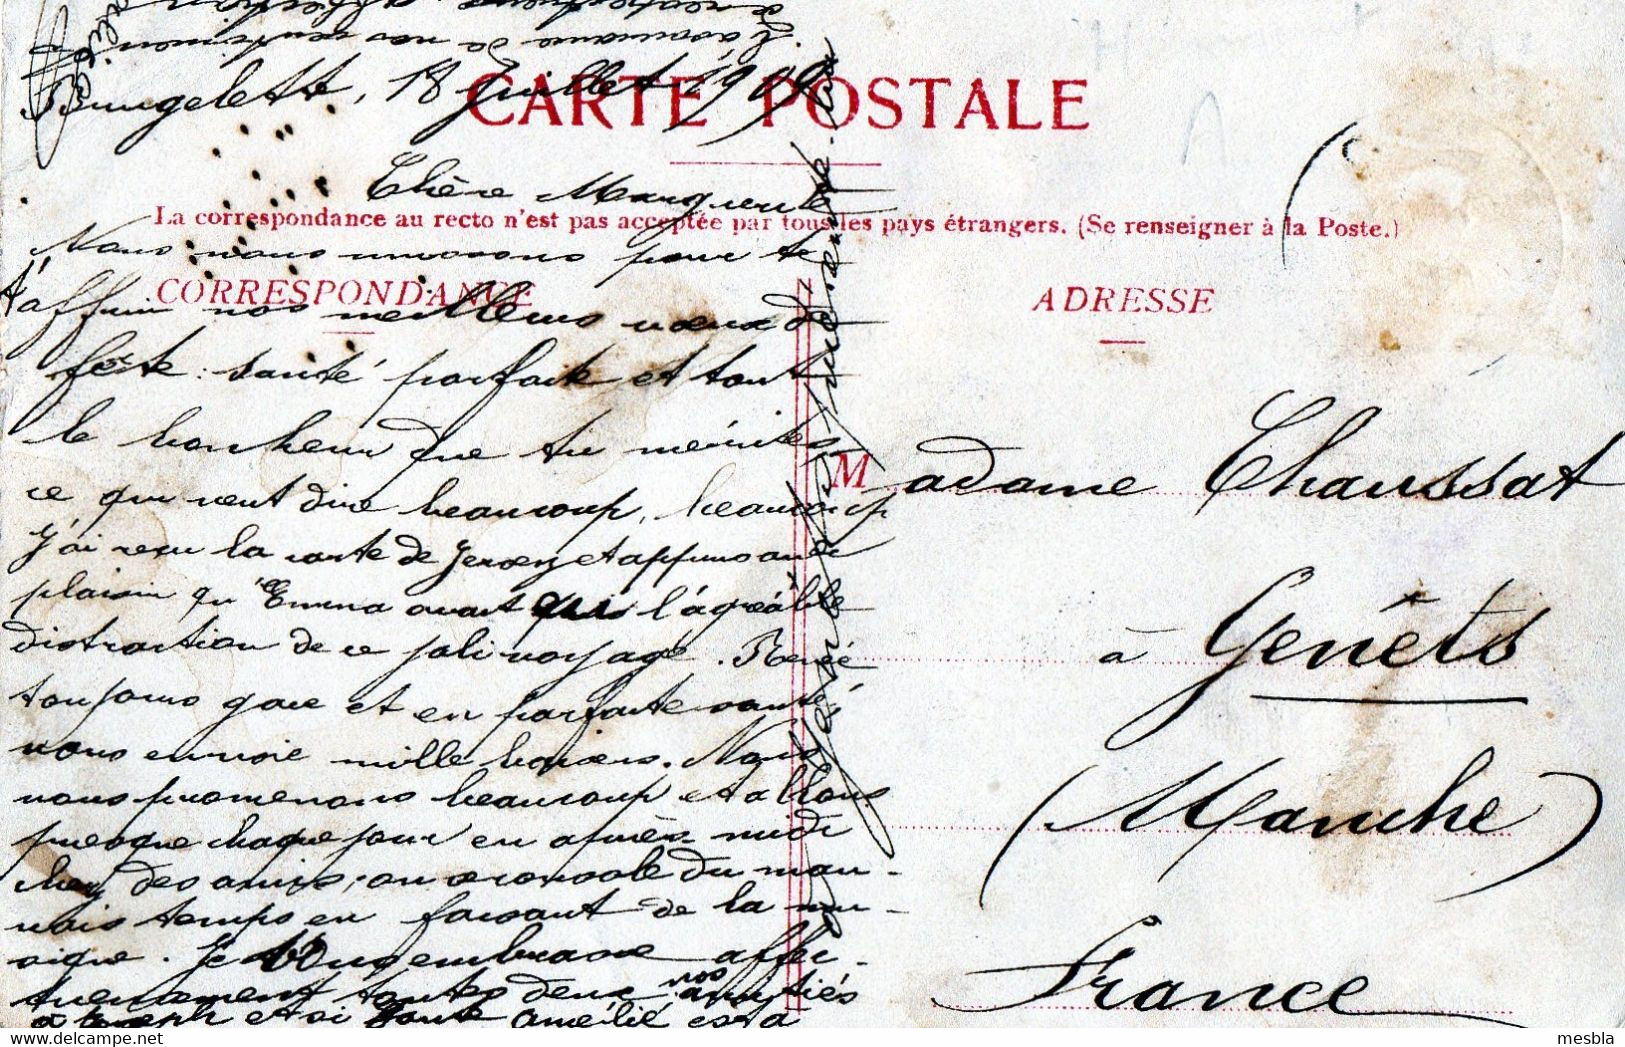 Brugelette, 18 Juillet 1909
CARTE POSTALE
Chère Marguerite
La correspondance au recto n'est pas acceptée par tous les pays étrangers. (Se renseigner à la Poste.)
Nous nous unissons pour te
CORRESPONDANCE
ADRESSE
t'offrir nos meilleurs vœux de
fête : santé parfaite et tout
le bonheur que tu mérites
ce qui veut dire beaucoup, beaucoup
J'ai reçu la carte de Jersey et appris avec
plaisir qu'Emma avait l'agréable
distraction de ce joli voyage. René
toujours gai et en parfaite santé
vous envoie mille baisers. Nous
nous promenons beaucoup et allons
presque chaque jour en après-midi
chez des amis, on se console du mau-
vais temps en faisant de la mu-
sique. Je vous embrasse affec-
tueusement toutes deux nos amitiés
à Joseph et si tante Amélie est à
l'assurance de nos sentiments
Madame Chaussat
à Genêts
(Manche)
France
mesbla